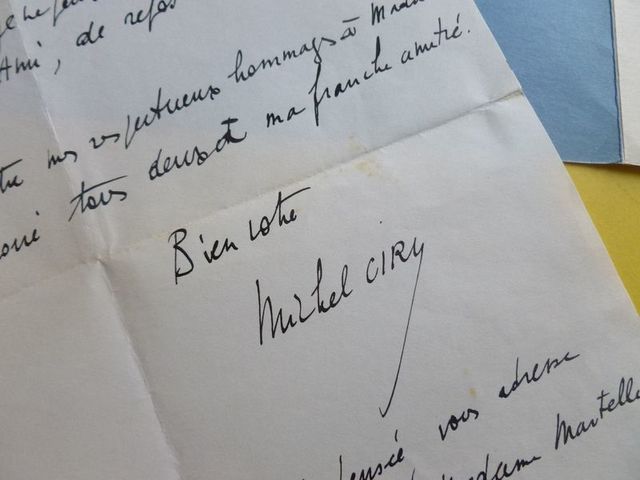 Ami, de
mes respectueux hommages à
tous deux et ma franche amitié.
Bien votre
Michel CIRY
pensée vous adresse
Madame Martelle